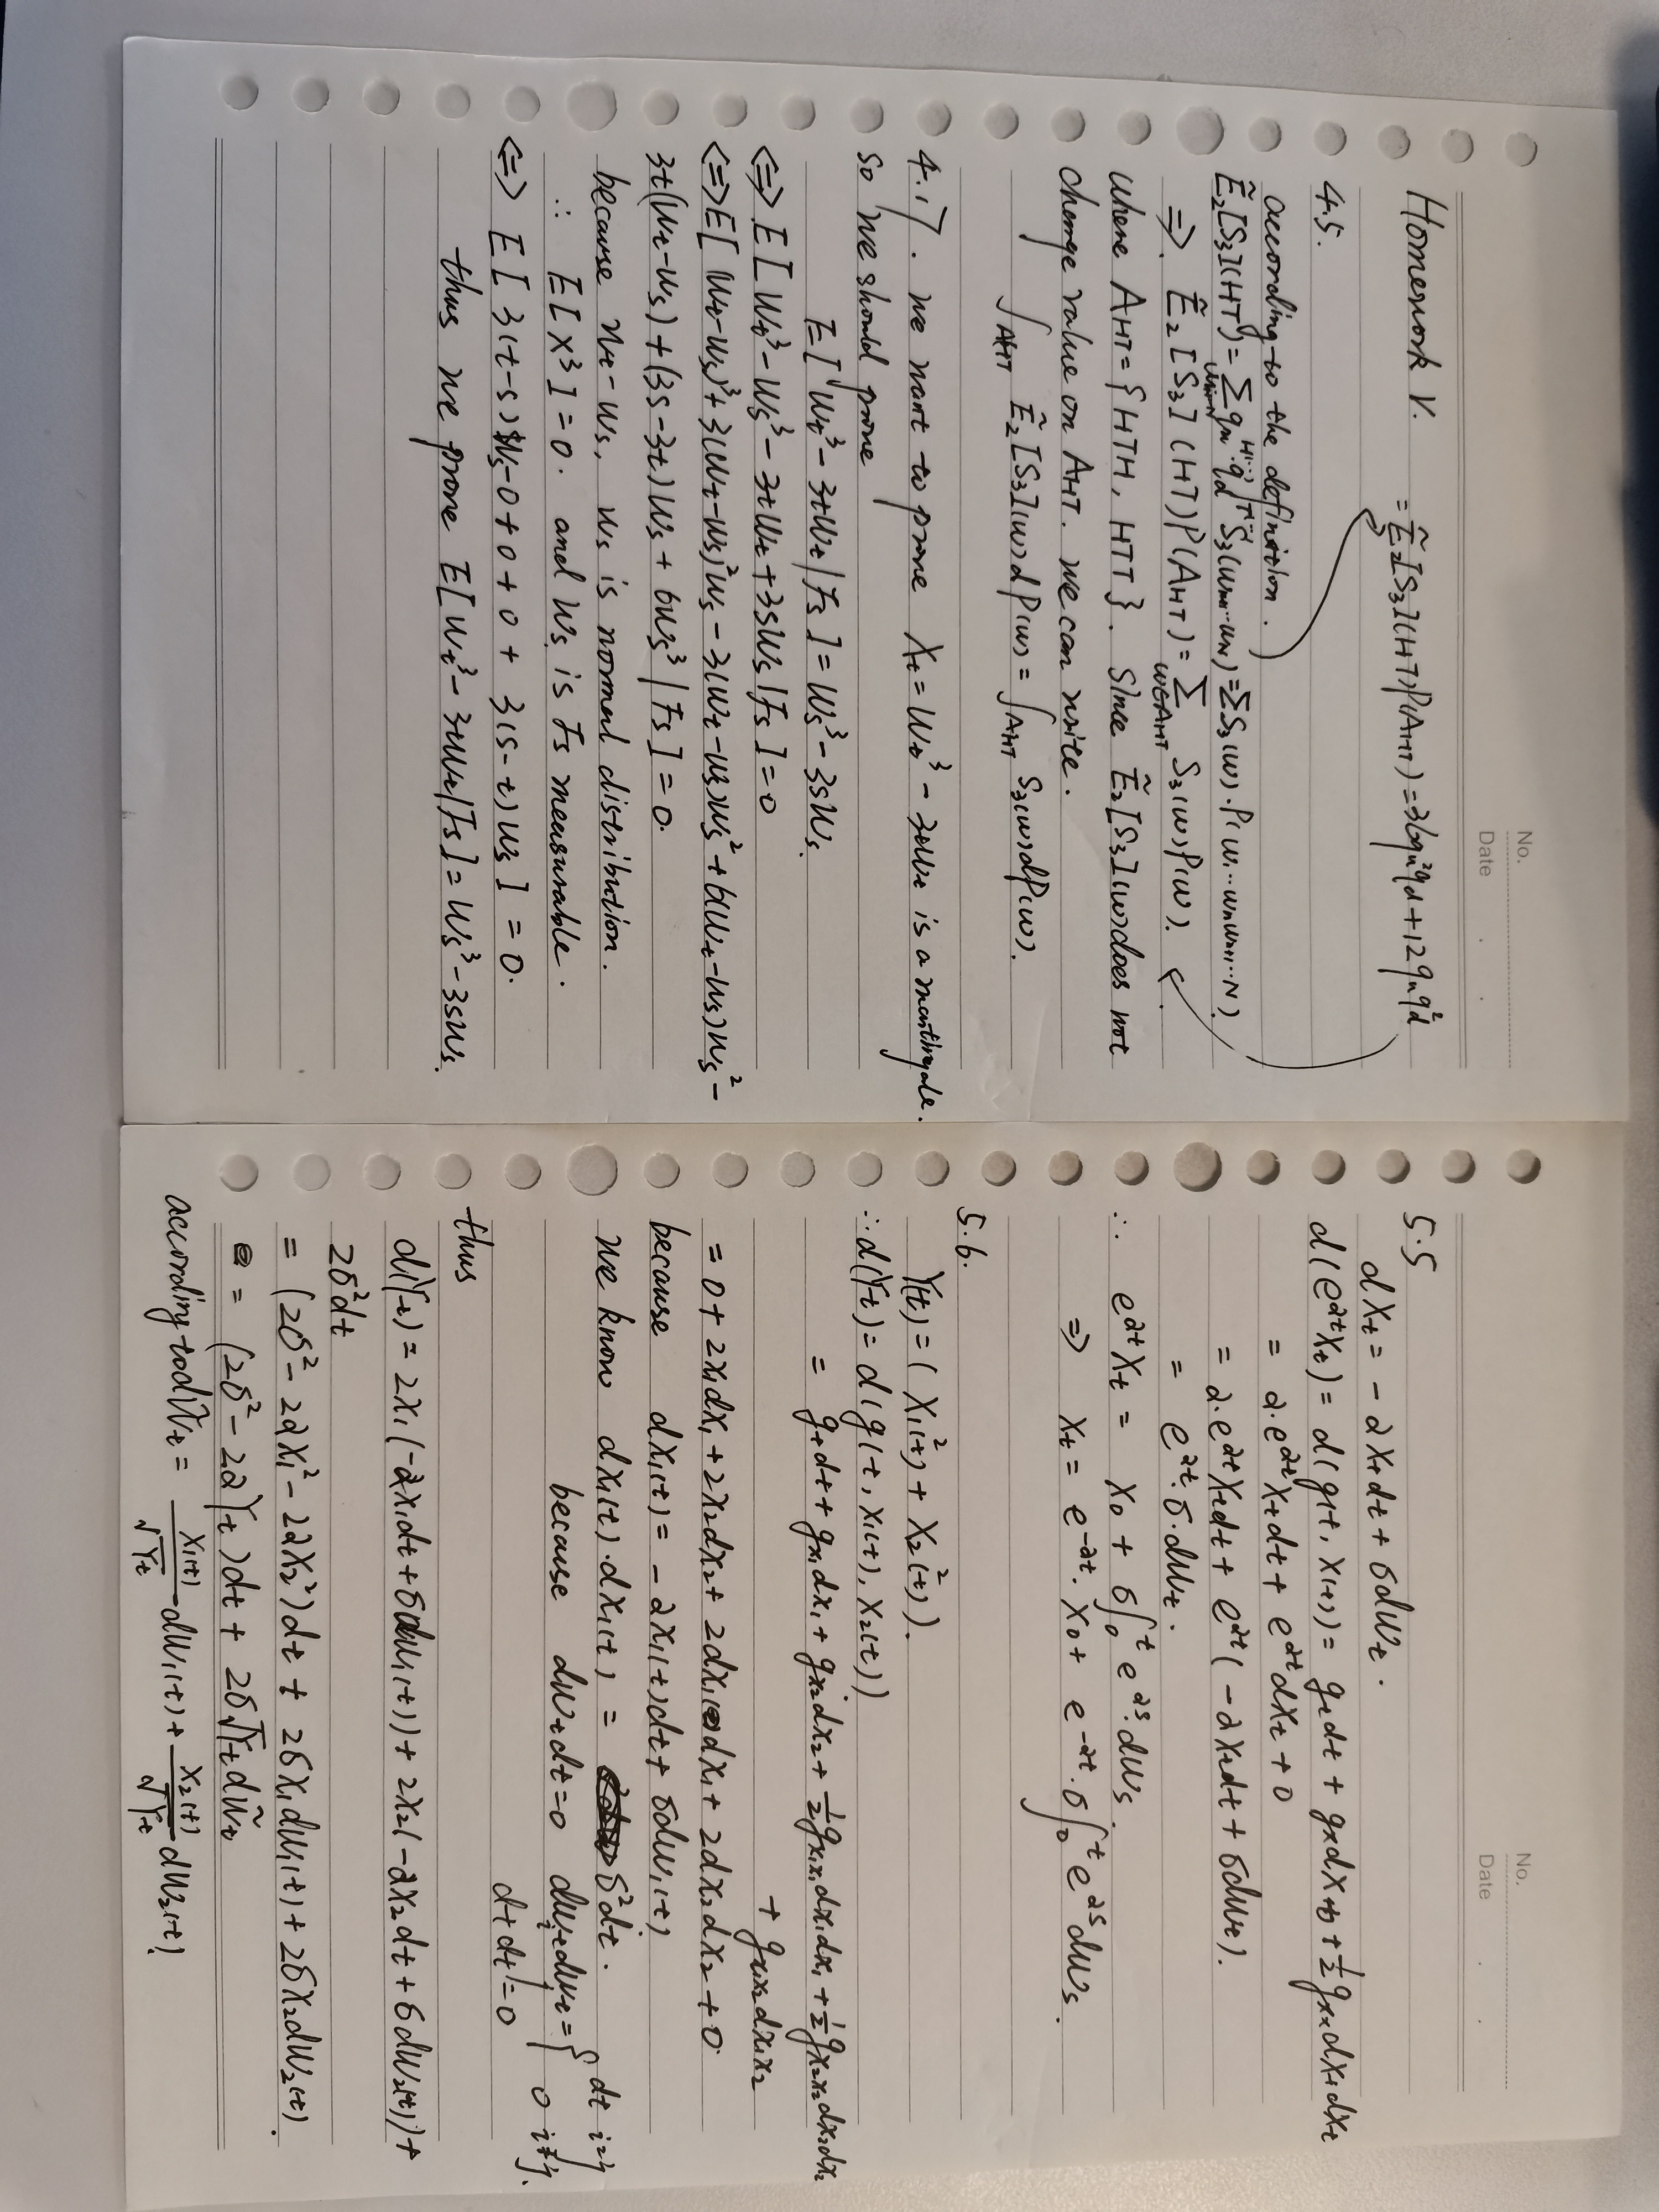 No.
Date . .
Homework V.
= Ẽ₂[S₃](HT)P(A_HT) = 36qᵤ²q_d + 12qᵤq_d²
4.5.
according to the definition.
Ẽ₂[S₃](HT) = Σ qᵤ^H(…) · q_d^T(…) S₃(ω…ω_N) = ΣS₃(ω)·P(ω₁…ωₙωₙ₊₁…N).
⇒. Ẽ₂[S₃](HT)P(A_HT) = Σ_{ω∈A_HT} S₃(ω)P(ω).
where A_HT = {HTH, HTT}. Since Ẽ₂[S₃](ω) does not
change value on A_HT. we can write.
∫_{A_HT} Ẽ₂[S₃](ω)dP(ω) = ∫_{A_HT} S₃(ω)dP(ω).
4.17. we want to prove X_t = W_t³ - 3tW_t is a marthgale.
so we should prove
E[W_t³ - 3tW_t | F_s] = W_s³ - 3sW_s.
⇔ E[W_t³ - W_s³ - 3tW_t + 3sW_s | F_s] = 0
⇔ E[(W_t-W_s)³ + 3(W_t-W_s)²W_s - 3(W_t-W_s)W_s² + 6(W_t-W_s)W_s² -
3t(W_t-W_s) + (3s-3t)W_s + 6W_s³ | F_s] = 0.
because W_t - W_s, W_s is normal distribution.
∴ E[X³] = 0. and W_s is F_s measurable.
⇔ E[3(t-s)W_s - 0 + 0 + 0 + 3(s-t)W_s] = 0.
thus we prove E[W_t³ - 3tW_t | F_s] = W_s³ - 3sW_s.
No.
Date . .
5.5
dX_t = -αX_tdt + σdW_t.
d(e^{αt}X_t) = d(g(t, X(t)) = g_tdt + g_xdX_t + ½g_{xx}dX_tdX_t
= α·e^{αt}X_tdt + e^{αt}dX_t + 0
= α·e^{αt}X_tdt + e^{αt}(-αX_tdt + σdW_t).
= e^{αt}·σ·dW_t.
∴ e^{αt}X_t = X₀ + σ∫₀^t e^{αs}·dW_s.
⇒ X_t = e^{-αt}·X₀ + e^{-αt}·σ∫₀^t e^{αs}dW_s.
5.6.
Y(t) = (X₁²(t) + X₂²(t)).
∴ d(Y_t) = d(g(t, X₁(t), X₂(t))
= g_tdt + g_{x₁}dx₁ + g_{x₂}dx₂ + ½g_{x₁x₁}dx₁dx₁ + ½g_{x₂x₂}dx₂dx₂
+ g_{x₁x₂}dx₁x₂
= 0 + 2x₁dx₁ + 2x₂dx₂ + 2dx₁dx₁ + 2dx₂dx₂ + 0.
because dX₁(t) = -αX₁(t)dt + σdW₁(t).
we know dX₁(t)·dX₁(t) = σ²dt.
because dW_tdt = 0 dW_{it}dW_{jt} = { dt i=j
0 i≠j.
dtdt = 0
thus
d(Y_t) = 2X₁(-αX₁dt + σdW₁(t)) + 2X₂(-αX₂dt + σdW₂(t)) +
2σ²dt
= (2σ² - 2αX₁² - 2αX₂²)dt + 2σX₁dW₁(t) + 2σX₂dW₂(t).
= (2σ² - 2αY_t)dt + 2σ√Y_t dW̃_t
according to dW̃_t = X₁(t)/√Y_t dW₁(t) + X₂(t)/√Y_t dW₂(t).